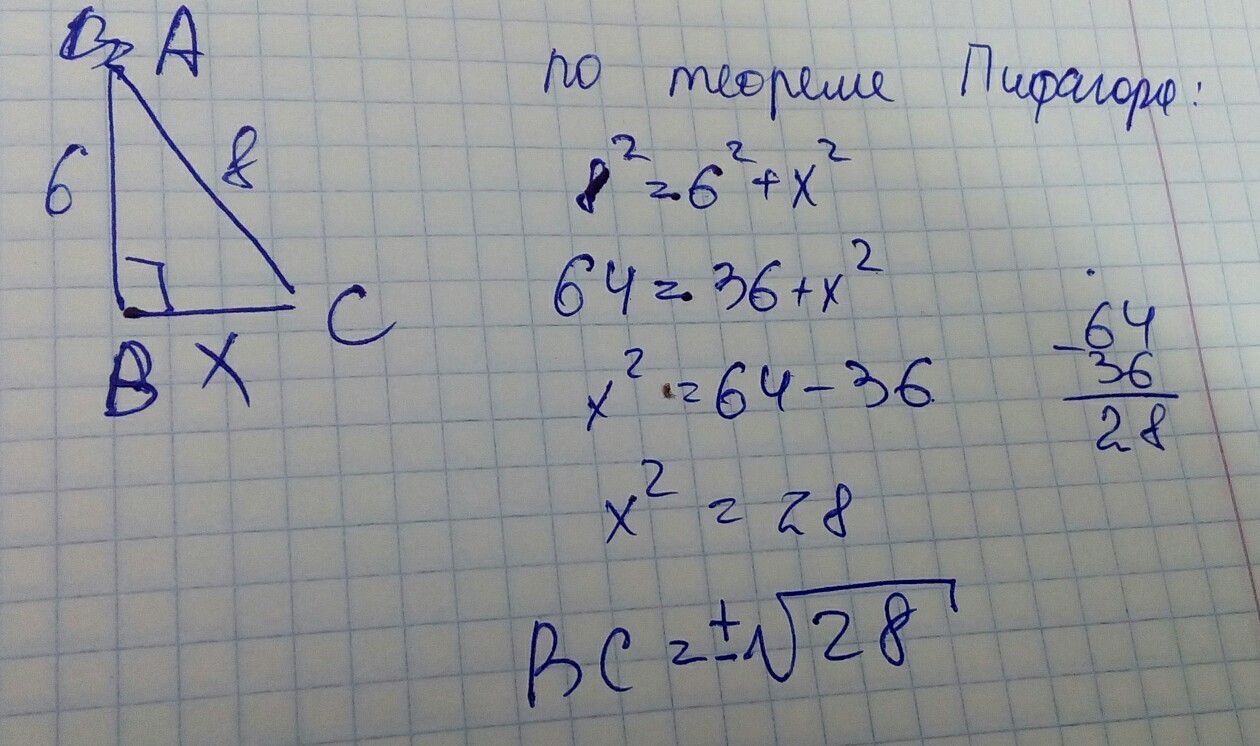 A
6
8
B
X
C
по теореме Пифагора:
8² = 6² + x²
64 = 36 + x²
x² = 64 - 36
x² = 28
BC = ±√28
64
- 36
28